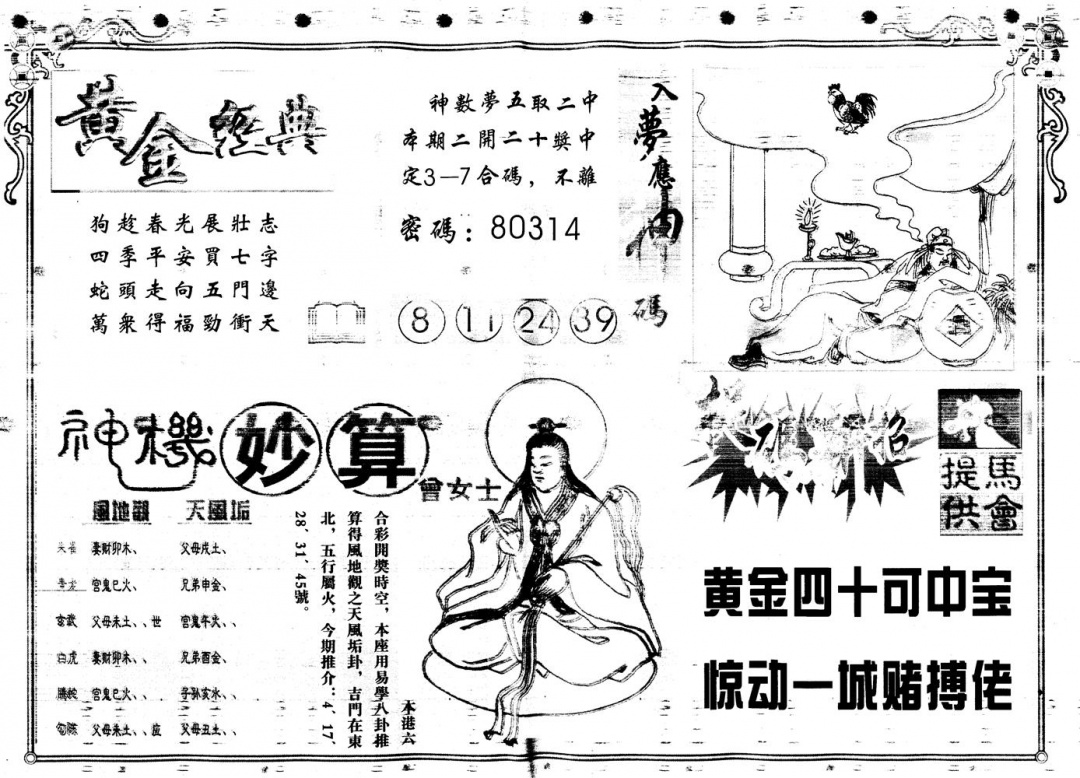 黄金經典
狗趁春光展壯志
四季平安買七字
蛇頭走向五門邊
萬衆得福勁衝天
神數夢五取二中
本期二開二十獎中
定3—7合碼，不離
密碼：80314
8 11 24 39
入夢應神碼
神機妙算
曾女士
風地觀 天風垢
朱雀 妻財卯木、 父母戌土、
青龙 宫鬼巳火、 兄弟申金、
玄武 父母未土、、世 宫鬼午火、、
白虎 妻財卯木、、 兄弟酉金、
螣蛇 宫鬼巳火、、 子孙亥水、、
勾陈 父母未土、、应 父母丑土、、
本港六
合彩開獎時空，本座用易學八卦推
算得風地觀之天風垢卦，吉門在東
北，五行屬火，今期推介：4、17、
28、31、45號。
馬會
提供
黄金四十可中宝
惊动一城赌搏佬